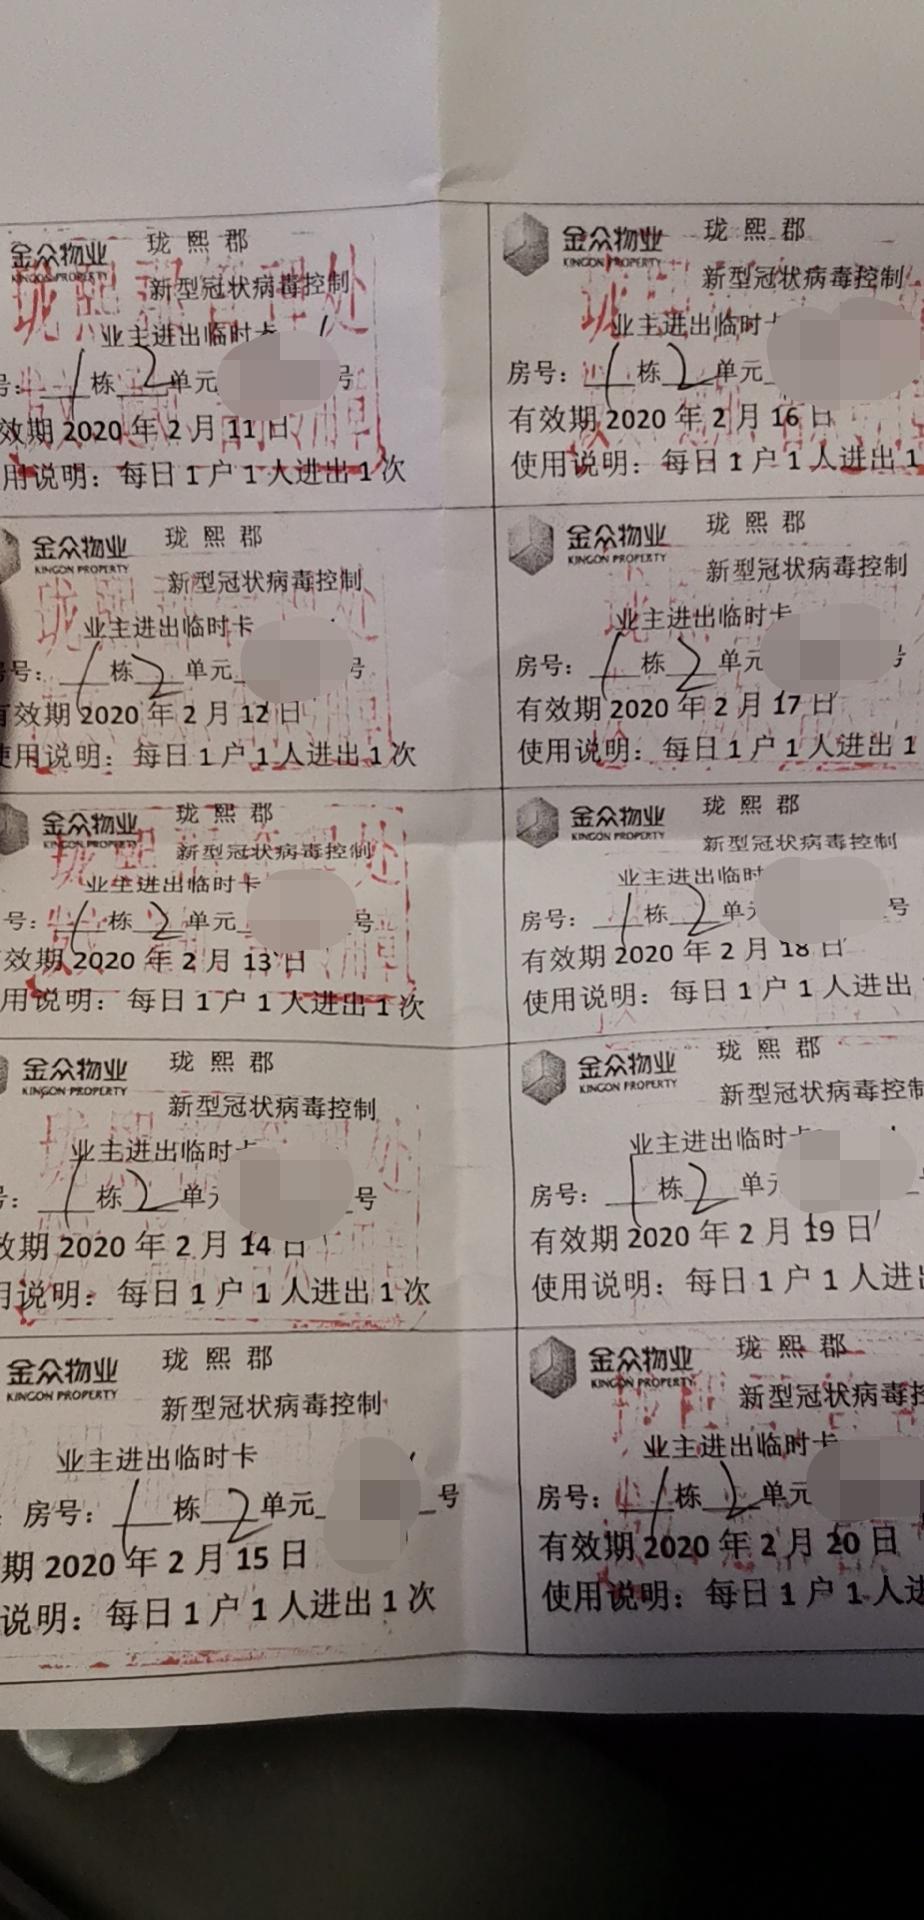 金众物业 珑熙郡
KINGON PROPERTY
新型冠状病毒控制
业主进出临时卡
号: 1 栋 2 单元 号
效期 2020 年 2 月 11 日
用说明: 每日 1 户 1 人进出 1 次
金众物业 珑熙郡
KINGON PROPERTY
新型冠状病毒控制
业主进出临时卡
房号: 1 栋 2 单元 号
有效期 2020 年 2 月 12 日
使用说明: 每日 1 户 1 人进出 1 次
金众物业 珑熙郡
KINGON PROPERTY
新型冠状病毒控制
业主进出临时卡
号: 1 栋 2 单元 号
效期 2020 年 2 月 13 日
用说明: 每日 1 户 1 人进出 1 次
金众物业 珑熙郡
KINGON PROPERTY
新型冠状病毒控制
业主进出临时卡
号: 1 栋 2 单元 号
效期 2020 年 2 月 14 日
用说明: 每日 1 户 1 人进出 1 次
金众物业 珑熙郡
KINGON PROPERTY
新型冠状病毒控制
业主进出临时卡
房号: 1 栋 2 单元 号
期 2020 年 2 月 15 日
说明: 每日 1 户 1 人进出 1 次
金众物业 珑熙郡
KINGON PROPERTY
新型冠状病毒控制
业主进出临时卡
房号: 1 栋 2 单元
有效期 2020 年 2 月 16 日
使用说明: 每日 1 户 1 人进出 1
金众物业 珑熙郡
KINGON PROPERTY
新型冠状病毒控制
业主进出临时卡
房号: 1 栋 2 单元 号
有效期 2020 年 2 月 17 日
使用说明: 每日 1 户 1 人进出 1
金众物业 珑熙郡
KINGON PROPERTY
新型冠状病毒控制
业主进出临时
房号: 1 栋 2 单元 号
有效期 2020 年 2 月 18 日
使用说明: 每日 1 户 1 人进出
金众物业 珑熙郡
KINGON PROPERTY
新型冠状病毒控制
业主进出临时卡
房号: 1 栋 2 单元
有效期 2020 年 2 月 19 日
使用说明: 每日 1 户 1 人进出
金众物业 珑熙郡
KINGON PROPERTY
新型冠状病毒控
业主进出临时卡
房号: 1 栋 2 单元
有效期 2020 年 2 月 20 日
使用说明: 每日 1 户 1 人进